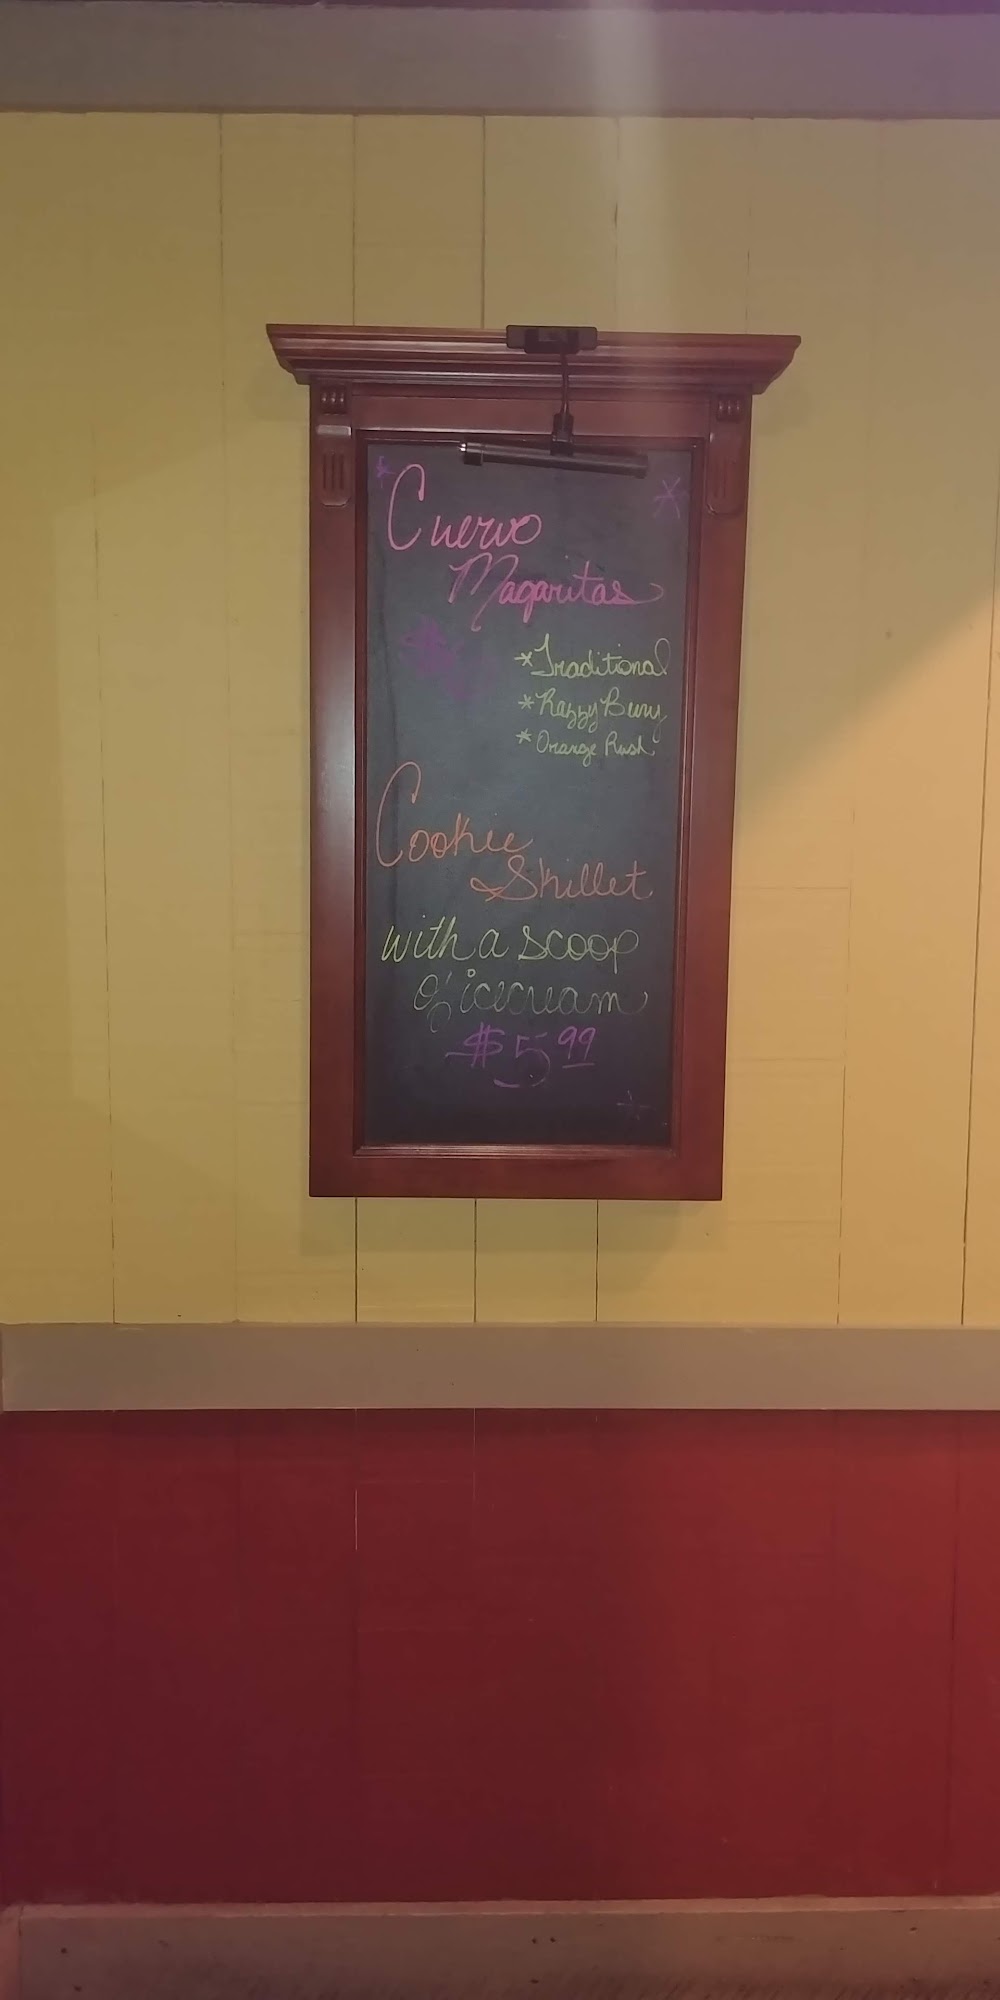 Cuervo
Magaritas
*Traditional
*Razzy Burry
*Orange Rush
Cookie
Skillet
with a scoop
of icecream
$5.99